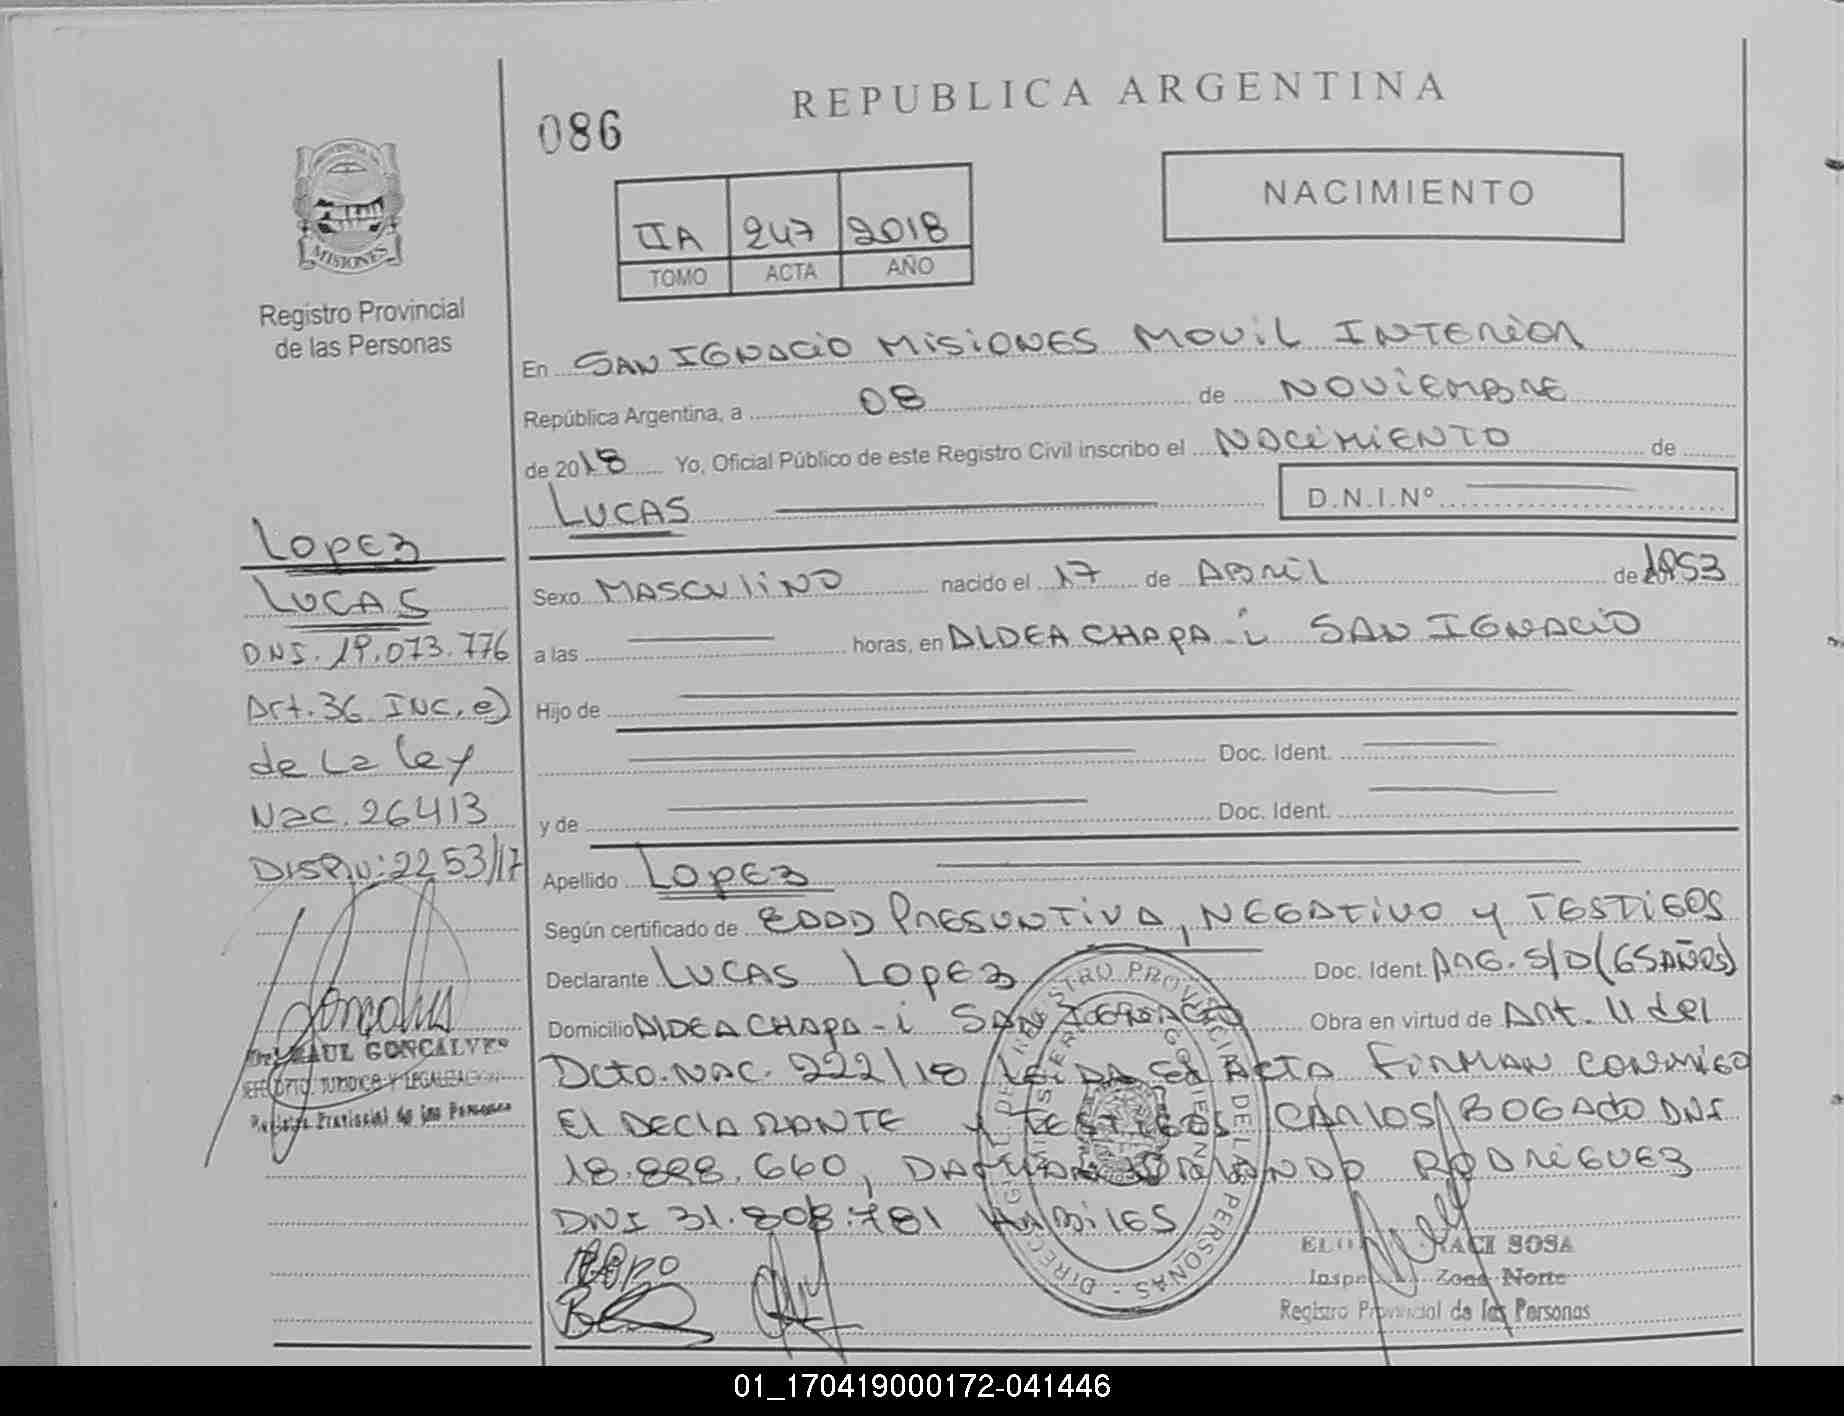 REPUBLICA ARGENTINA
086
NACIMIENTO
IIA 247 2018
TOMO ACTA AÑO
PROVINCIA DE
MISIONES
Registro Provincial
de las Personas
En SAN IGNACIO MISIONES MOVIL INTERIOR
República Argentina, a 08 de NOVIEMBRE
de 2018 Yo, Oficial Público de este Registro Civil inscribo el NACIMIENTO de
LUCAS D.N.I.Nº
Sexo MASCULINO nacido el 17 de ABRIL de 1953
a las horas, en ALDEA CHAPA-i SAN IGNACIO
Hijo de
Doc. Ident.
y de Doc. Ident.
Apellido LOPEZ
Según certificado de EDAD PRESUNTIVA, NEGATIVO y TESTIGOS
Declarante LUCAS LOPEZ Doc. Ident. ARG. S/D (65 AÑOS)
Domicilio ALDEA CHAPA-i SAN IGNACIO Obra en virtud de Art. 11 del
Dcto. NAC. 222/18 LEIDA EL ACTA FIRMAN CONMIGO
El DECLARANTE y TESTIGOS CARLOS BOGADO DNI
18.898.660, DAMIAN ORLANDO RODRIGUEZ
DNI 31.808.781 HABILES
LOPEZ
LUCAS
DNI. 19.073.776
Art. 36 INC. e)
de La Ley
Nac. 26413
DISP.N: 2253/17
RAUL GONCALVES
JEFE DPTO. JURIDICO Y LEGALIZACION
Registro Provincial de las Personas
SOSA
Zona Norte
Registro Provincial de las Personas
01_170419000172-041446